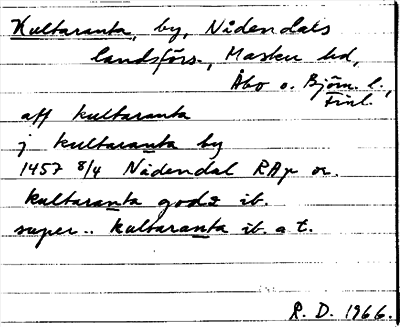 Kultaranta, by, Nådendals
landsförs., Masku hd,
Åbo o. Björn. l.,
Finl.
aff kultaranta
j kultaranta by
1457 8/4 Nådendal RAp or.
kultaranta godz ib.
super.. kultaranta ib. a t.
R. D. 1966.